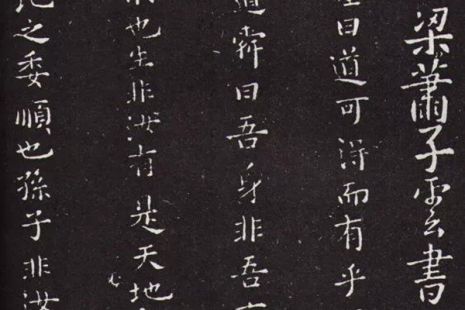 梁蕭子雲書
曰道可得而有乎
道舜曰吾身非吾
也生非汝有是天地
之委順也孫子非汝